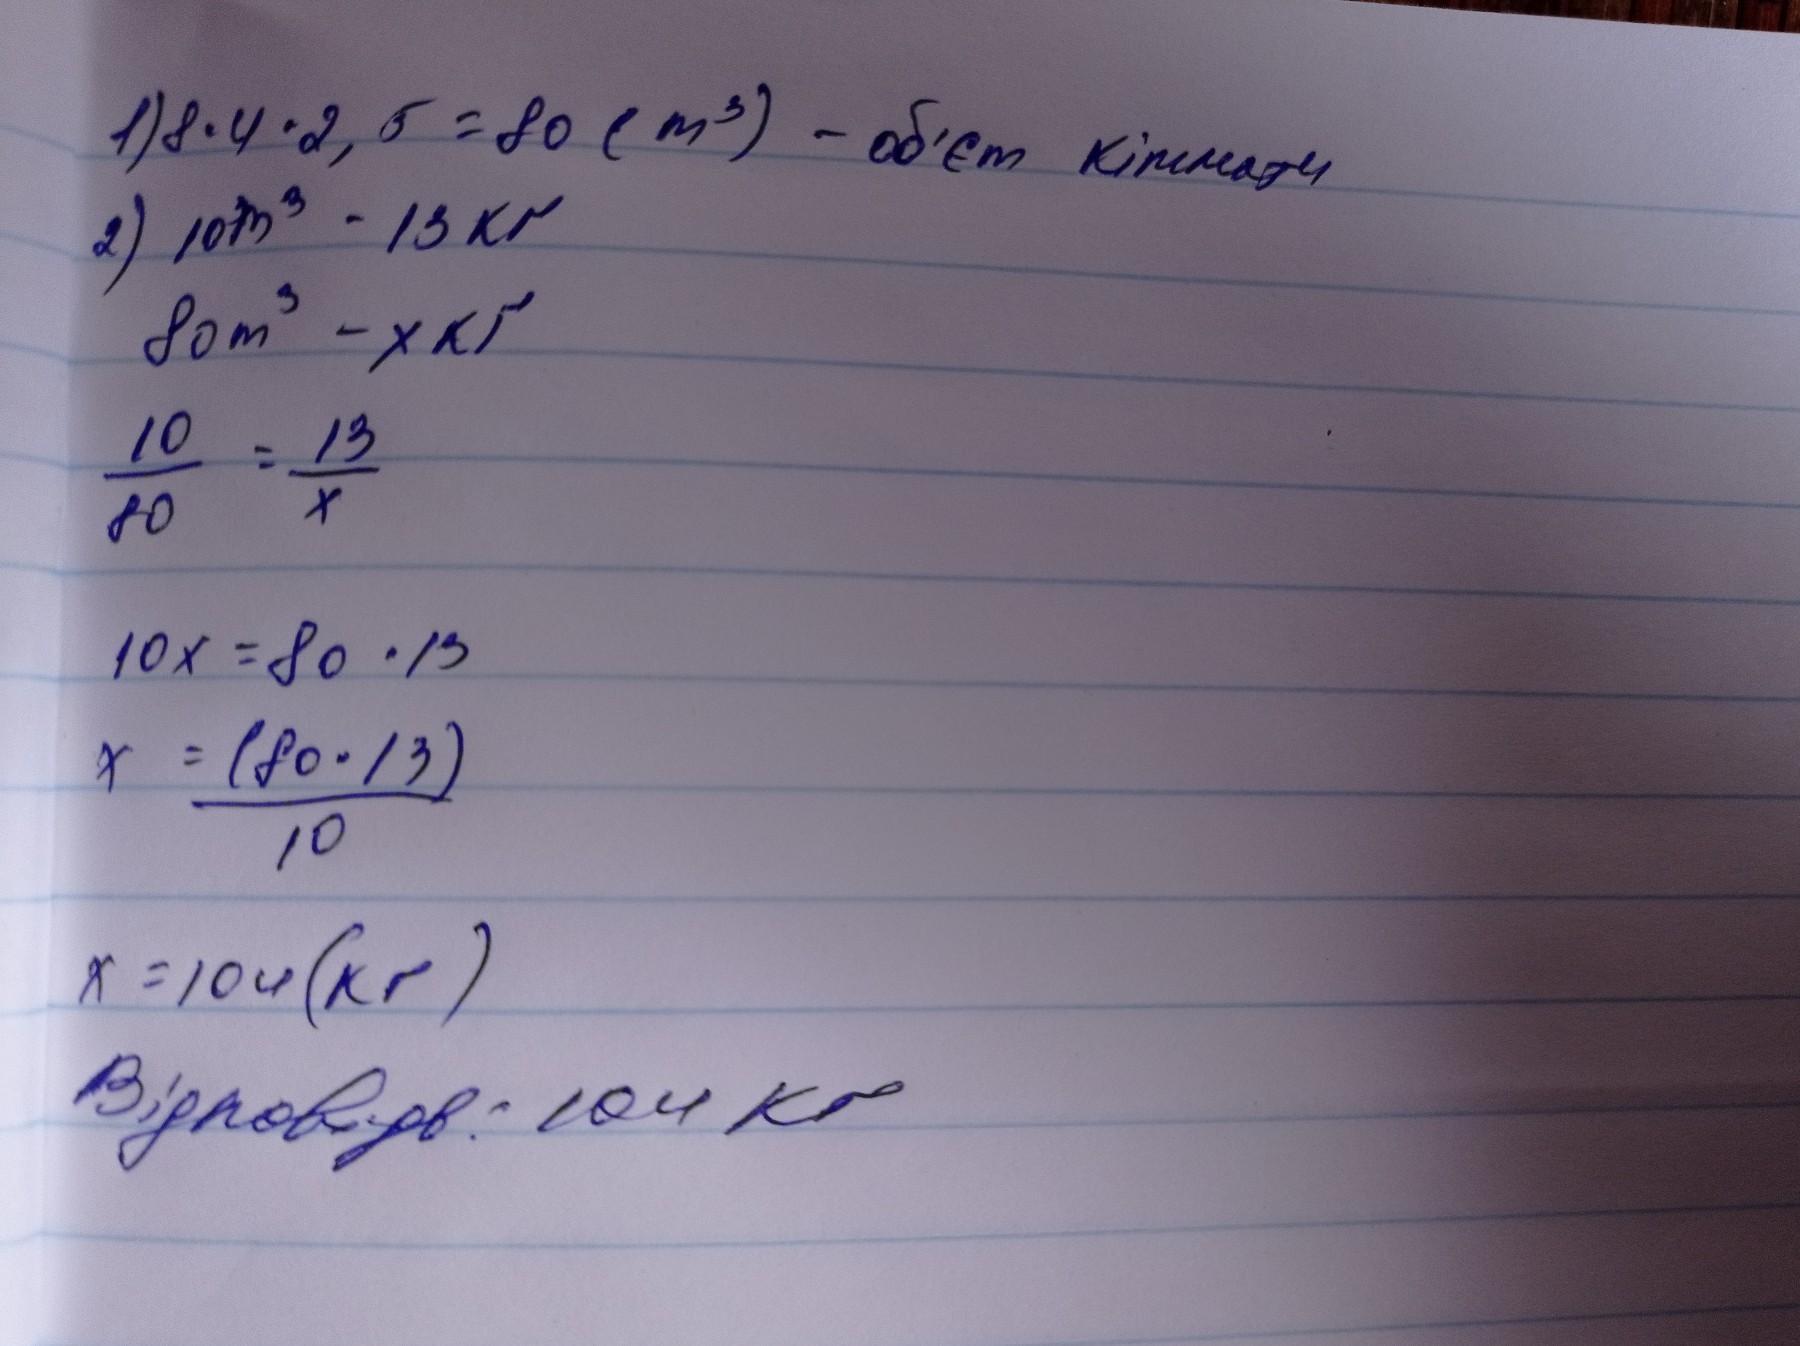 1) 8·4·2,5 = 80 (m³) - об'єm кімнати
2) 10m³ - 13 кг
80m³ - x кг
10/80 = 13/x
10x = 80·13
x = (80·13)/10
x = 104 (кг)
Відповідь: 104 кг